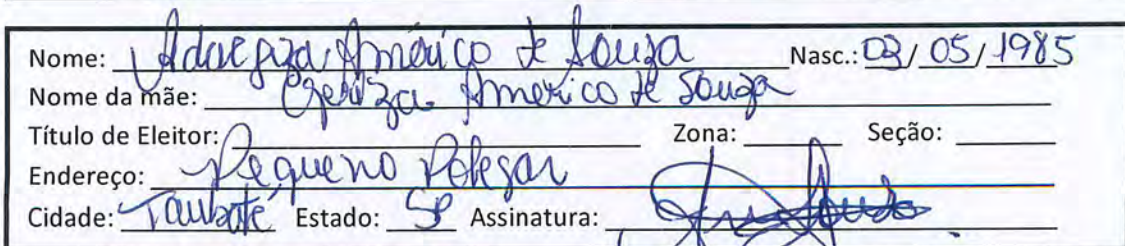 Nome: Américo de Souza Nasc.: 03/05/1985
Nome da mãe: Américo de Souza
Título de Eleitor: Zona: Seção:
Endereço: Pequeno Polegar
Cidade: Taubaté Estado: SP Assinatura: